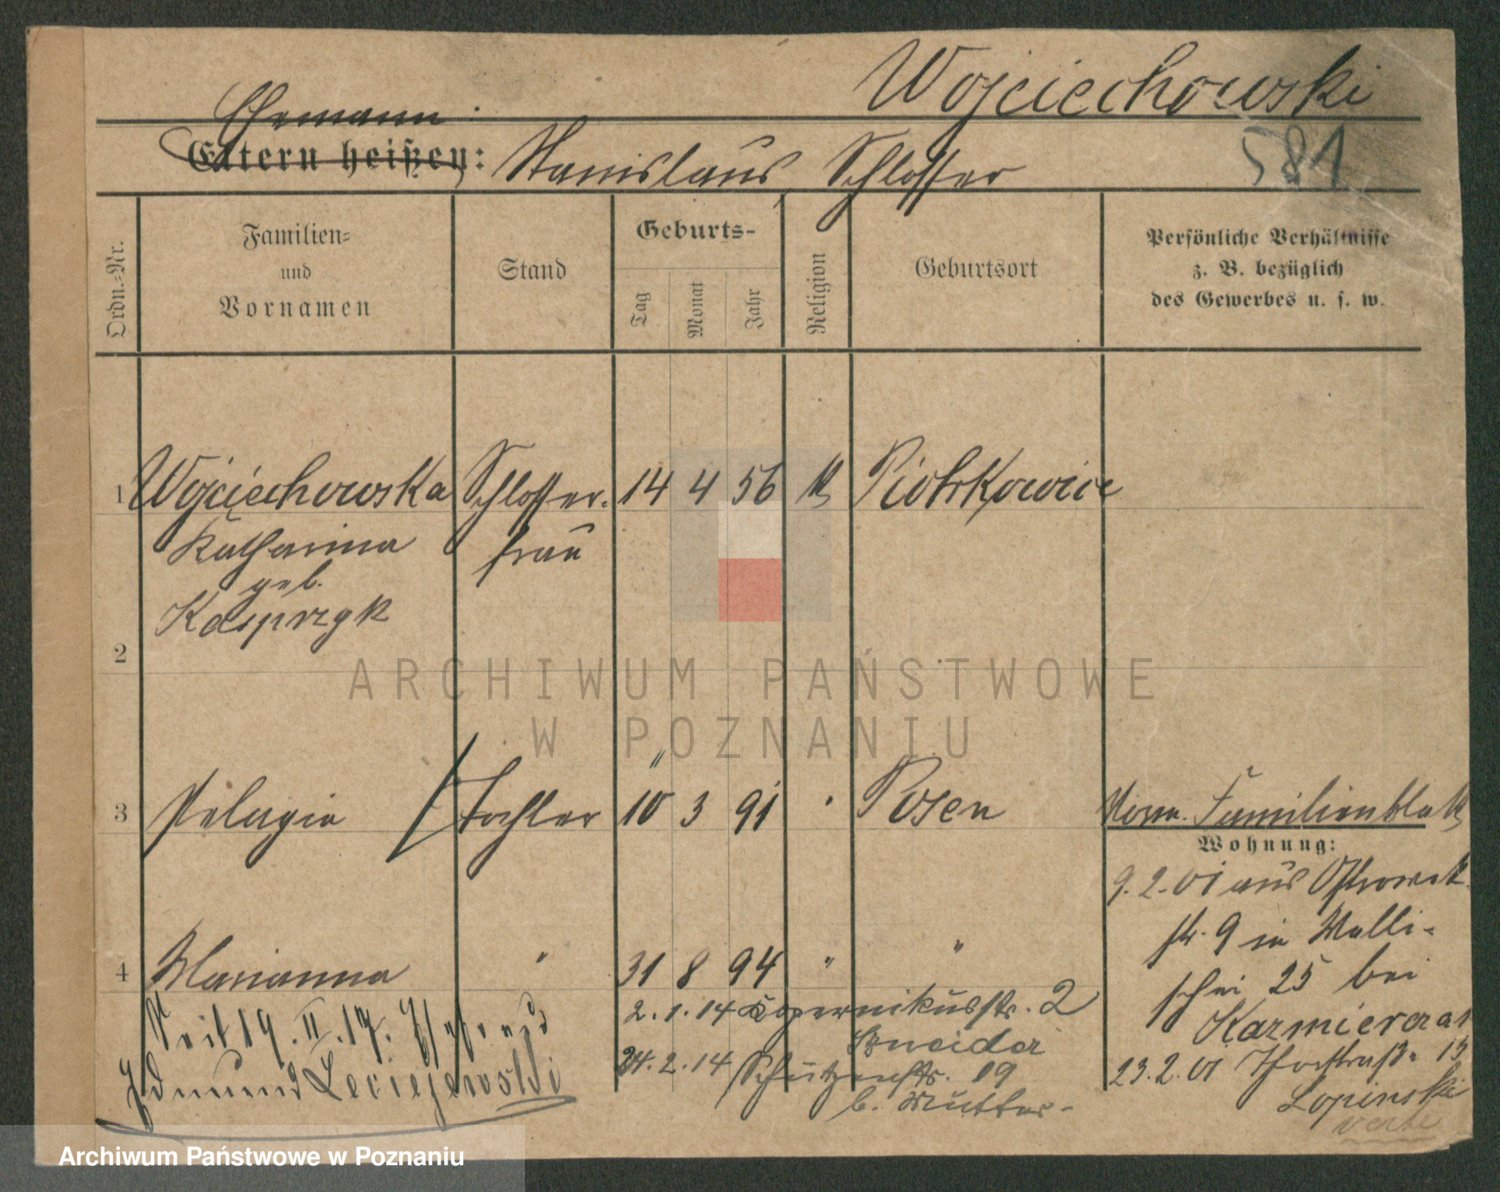 Wojciechowski
Ehemann:
Eltern heißen: Stanislaus Schlosser
581
Ordn.-Nr.
Familien-
und
Vornamen
Stand
Geburts-
Tag
Monat
Jahr
Religion
Geburtsort
Persönliche Verhältnisse
z. B. bezüglich
des Gewerbes u. s. w.
1 Wojciechowska Schlosser- 14 4 56 k Piotrkowice
Katharina frau
geb.
Kasprzyk
2
ARCHIWUM PAŃSTWOWE
W POZNANIU
3 Pelagia Tochter 10 3 91 Posen
Familienblatt
Wohnung:
9.2.01 aus Ostrowek
str. 9 in Walli-
schei 25 bei
Kazmierczak
4 Marianna " 31 8 94 " "
2.1.14 Kopernikusstr. 2
Sneider
24.2.14 Schützenstr. 19
b. Mutter-
Seit 19.II.17. Ehefrau d
Edmund Leciejewski
23.2.01 Thorstraße 13
Lopinski
verte
Archiwum Państwowe w Poznaniu